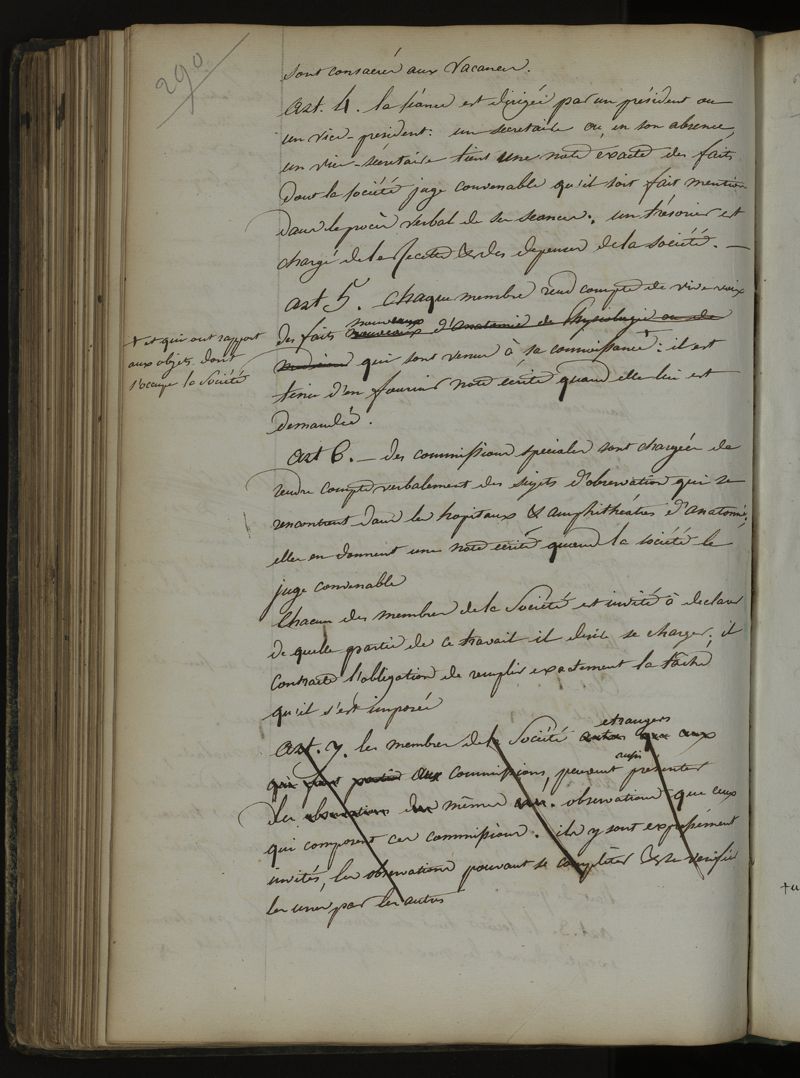 290
sont consacrés aux vacances.
Art. 4. la séance est dirigée par un président ou
un vice-president: un secretaire ou, en son absence,
un vice-sécretaire tient une note exacte des faits
dont la société juge convenable qu'il soit fait mention
dans le procès verbal de ses seances; un trésorier est
chargé de la Recette & des depenses de la société. —
art 5. Chaque membre rend compte de vive voix
nouveaux
des faits nouveaux d'anatomie de Physiologie ou de
+ et qui ont rapport
aux objets dont
s'occupe la Société
medecine qui sont venus à sa connaissance +: il est
tenu d'en fournir note écrite quand elle lui est
demandée.
art 6. — des commissions speciales sont chargées de
rendre compte verbalement des sujets d'observation qui se
rencontrent dans les hopitaux & amphithéatres d'anatomie;
elles en donnent une note écrite quand la société le
juge convenable
Chacun des membres de la Société est invité à declarer
de quelle partie de ce travail il desire se charger; il
contracte l'obligation de remplir exactement la tâche
qu'il s'est imposée
art. 7. les membres de la Société autres que ceux
etrangers
qui font partie aux commissions, peuvent présenter
aussi
des observations les mêmes observations que ceux
qui composent ces commissions. ils y sont expressément
invités, les observations pouvant se completer & se verifier
les unes par les autres